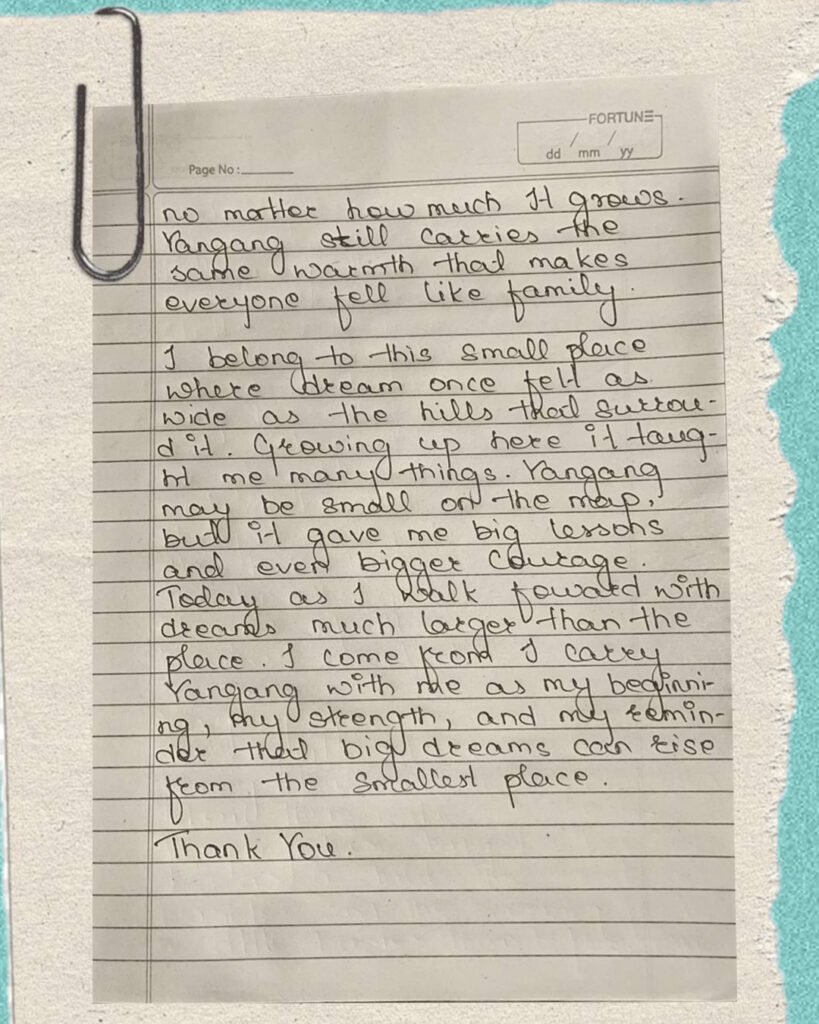 FORTUNE
dd / mm / yy
Page No :
no matter how much It grows.
Yangang still carries the
same warmth that makes
everyone fell like family.
I belong to this small place
where dream once felt as
wide as the hills that surrou-
d it. Growing up here it taug-
ht me many things. Yangang
may be small on the map,
but it gave me big lessons
and even bigger courage.
Today as I walk foward with
dreams much larger than the
place. I come from I carry
Yangang with me as my beginni-
ng, my strength, and my remin-
der that big dreams can rise
from the smallest place.
Thank You.